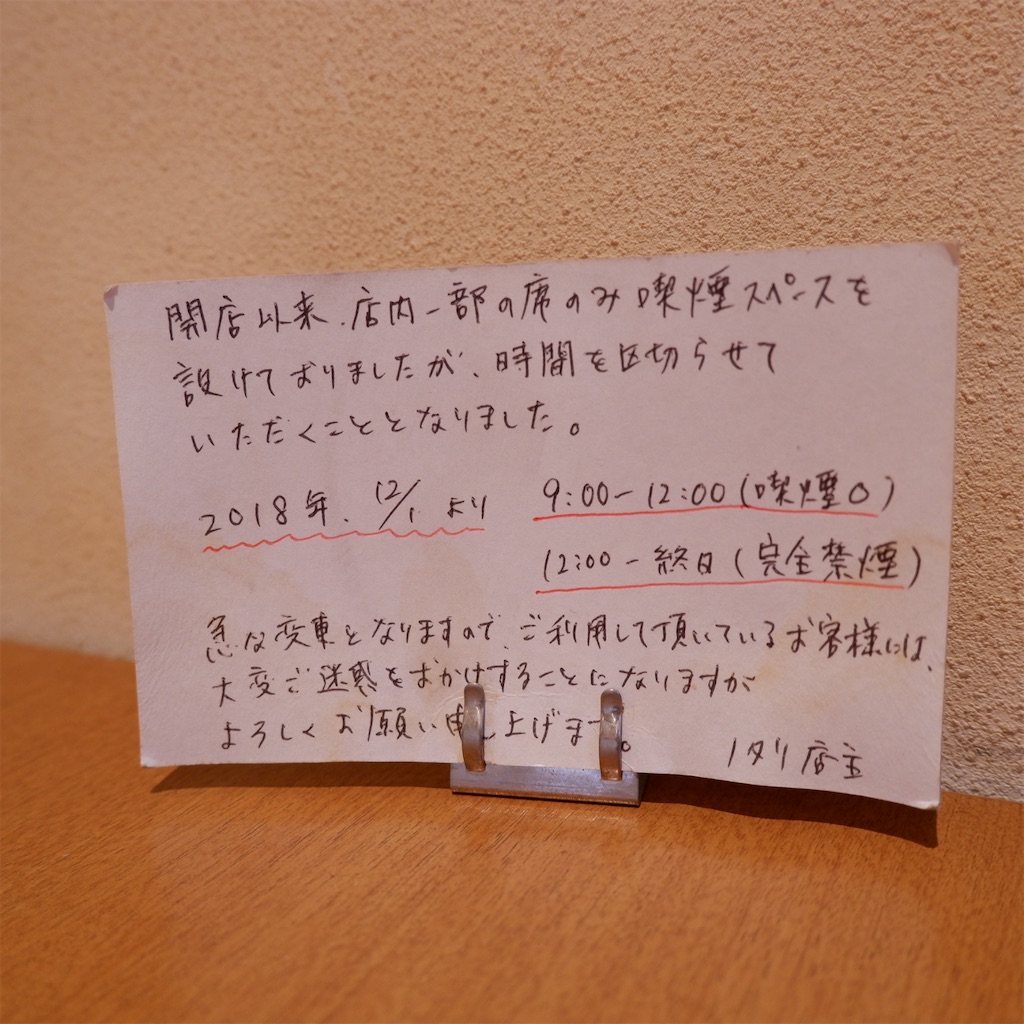 開店以来、店内一部の席のみ喫煙スペースを
設けておりましたが、時間を区切らせて
いただくこととなりました。
2018年、12/1 より
9:00-12:00(喫煙○)
12:00-終日(完全禁煙)
急な変更となりますので、ご利用して頂いているお客様には、
大変ご迷惑をおかけすることになりますが
よろしくお願い申し上げます。
ノタリ店主